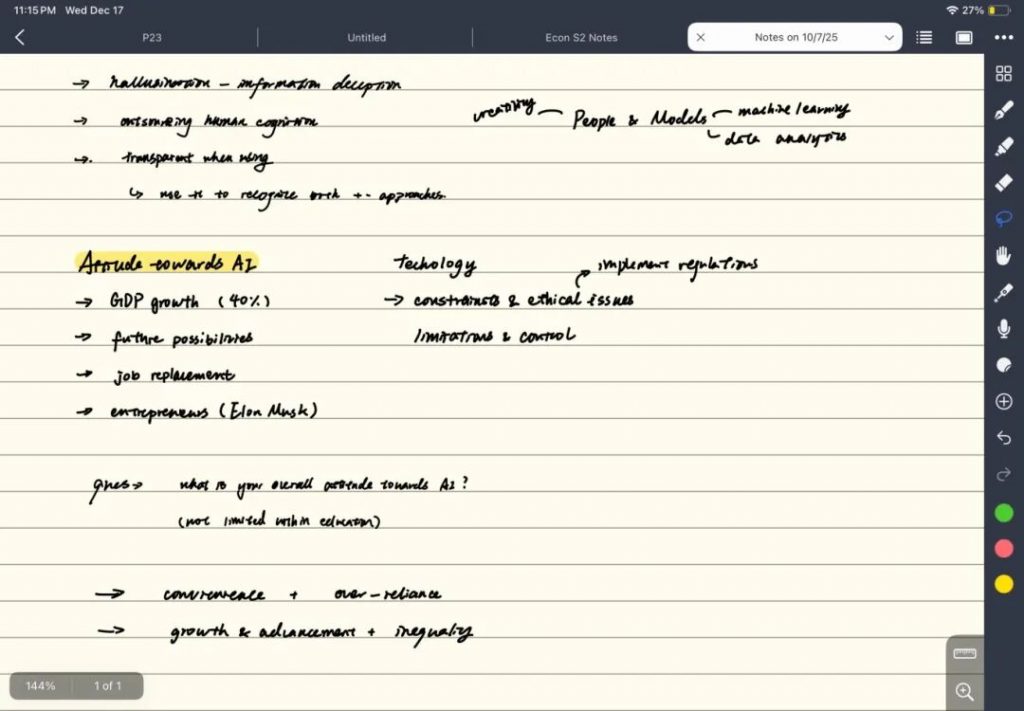 11:15 PM Wed Dec 17
27%
P23
Untitled
Econ S2 Notes
Notes on 10/7/25
→ hallusination – information deception
→ outsourcing human cognition
→. transparent when using
↳ use it to recognize with +- approaches.
creativity – People & Models – machine learning
data analysis
Attitude towards AI
→ GDP growth (40%)
→ future possibilities
→ job replacement
→ entrepreneurs (Elon Musk)
techology
implement regulations
→ constraints & ethical issues
limitations & control
ques → what is your overall attitude towards AI?
(not limited within education)
→ convenience + over-reliance
→ growth & advancement + inequality
144%
1 of 1